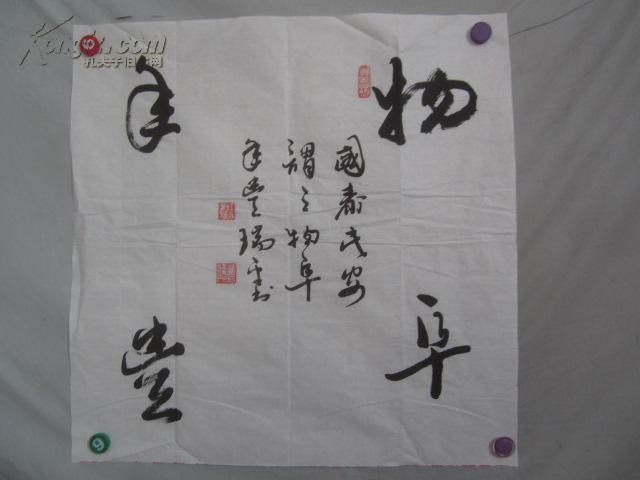 物阜
年豐
國泰民安
謂之物阜
年豐瑞
Kongfz.com
孔夫子旧书网